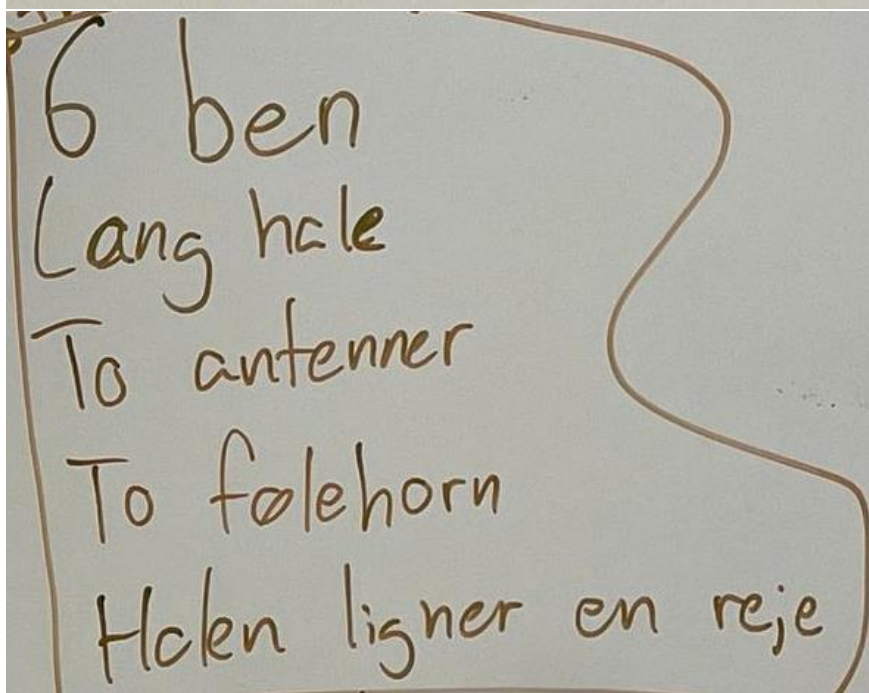 6 ben
Lang hale
To antenner
To følehorn
Halen ligner en reje